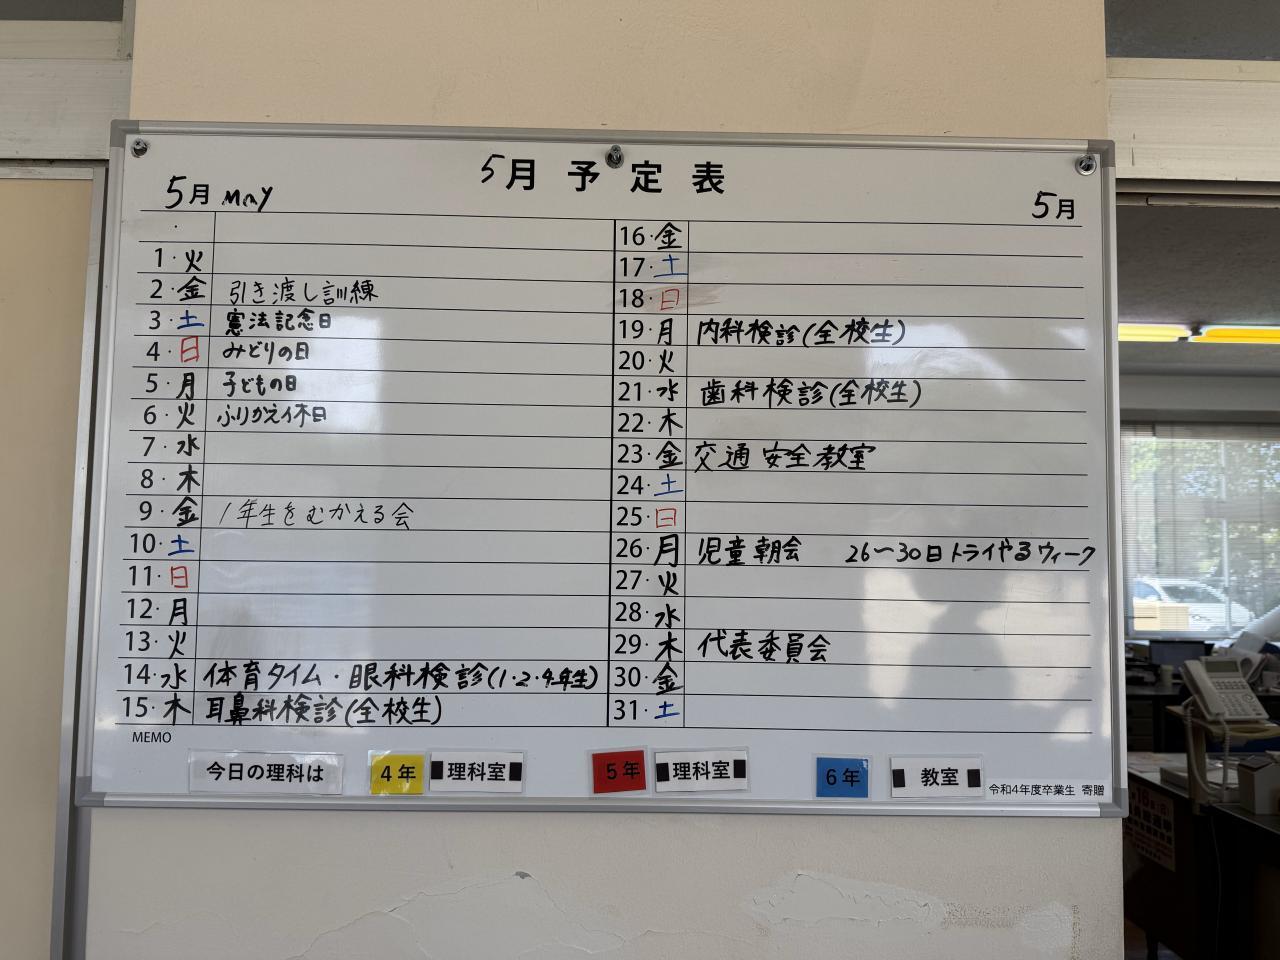 5月予定表
5月 May
5月
1・火
2・金 引き渡し訓練
3・土 憲法記念日
4・日 みどりの日
5・月 子どもの日
6・火 ふりかえ休日
7・水
8・木
9・金 1年生をむかえる会
10・土
11・日
12・月
13・火
14・水 体育タイム・眼科検診(1・2・4年生)
15・木 耳鼻科検診(全校生)
16・金
17・土
18・日
19・月 内科検診(全校生)
20・火
21・水 歯科検診(全校生)
22・木
23・金 交通安全教室
24・土
25・日
26・月 児童朝会 26〜30日トライやるウィーク
27・火
28・水
29・木 代表委員会
30・金
31・土
MEMO
今日の理科は 4年 理科室 5年 理科室 6年 教室
令和4年度卒業生 寄贈